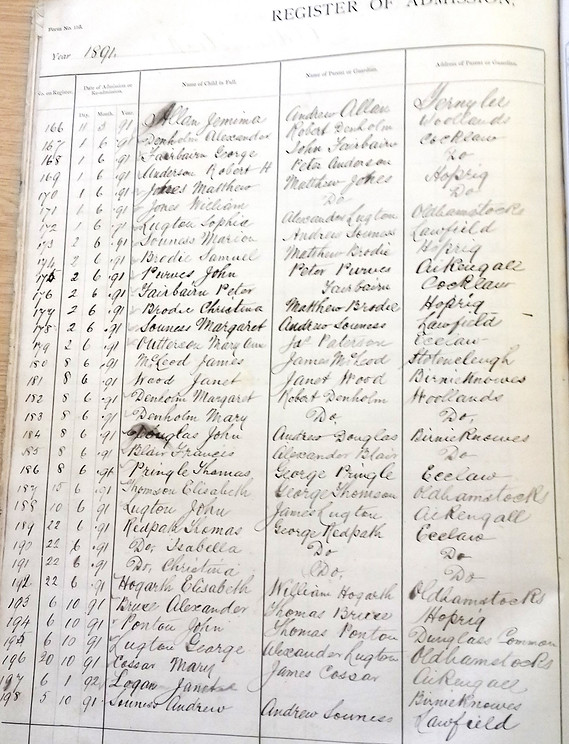 REGISTER OF ADMISSION,
Year 1891.
No. on Register. Date of Admission or Re-admission. Name of Child in Full. Name of Parent or Guardian. Address of Parent or Guardian.
Day. Month. Year.
166 11 5 91 Allan Jemima Andrew Allan Fernylea
167 1 6 91 Denholm Alexander Robert Denholm Woollands
168 1 6 91 Fairbairn George John Fairbairn Cocklaw
169 1 6 91 Anderson Robert H Peter Anderson Do
170 1 6 91 Jones Matthew Matthew Jones Hoprig
171 1 6 91 Jones William Do Do
172 1 6 91 Lugton Sophia Alexander Lugton Oldhamstocks
173 2 6 91 Souness Marion Andrew Souness Lawfield
174 2 6 91 Brodie Samuel Matthew Brodie Hoprig
175 2 6 91 Purves John Peter Purves Aikengall
176 2 6 91 Fairbairn Peter Fairbairn Cocklaw
177 2 6 91 Brodie Christina Matthew Brodie Hoprig
178 2 6 91 Souness Margaret Andrew Souness Lawfield
179 2 6 91 Mary Ann Jas Paterson Ecclaw
180 8 6 91 McLeod James James McLeod Stoneleugh
181 8 6 91 Wood Janet Janet Wood Birnieknowes
182 8 6 91 Denholm Margaret Robert Denholm Woollands
183 8 6 91 Denholm Mary Do Do,
184 8 6 91 Douglas John Andrew Douglas Birnieknowes
185 8 6 91 Blair Frances Alexander Blair Do
186 8 6 91 Pringle Thomas George Pringle Ecclaw
187 15 6 91 Thomson Elisabeth George Thomson Oldhamstocks
188 10 6 91 Lugton John James Lugton Aikengall
189 22 6 91 Redpath Thomas George Redpath Ecclaw
190 22 6 91 Do, Isabella Do Do
191 22 6 91 Do, Christina Do, Do
192 22 6 91 Hogarth Elisabeth William Hogarth Oldhamstocks
193 6 10 91 Bruce Alexander Thomas Bruce Hoprig
194 6 10 91 Ponton John Thomas Ponton Dunglass Common
195 6 10 91 Lugton George Alexander Lugton Oldhamstocks
196 20 10 91 Cossar Mary James Cossar Aikengall
197 6 1 92 Logan Janet Birnieknowes
198 5 10 91 Souness Andrew Andrew Souness Lawfield